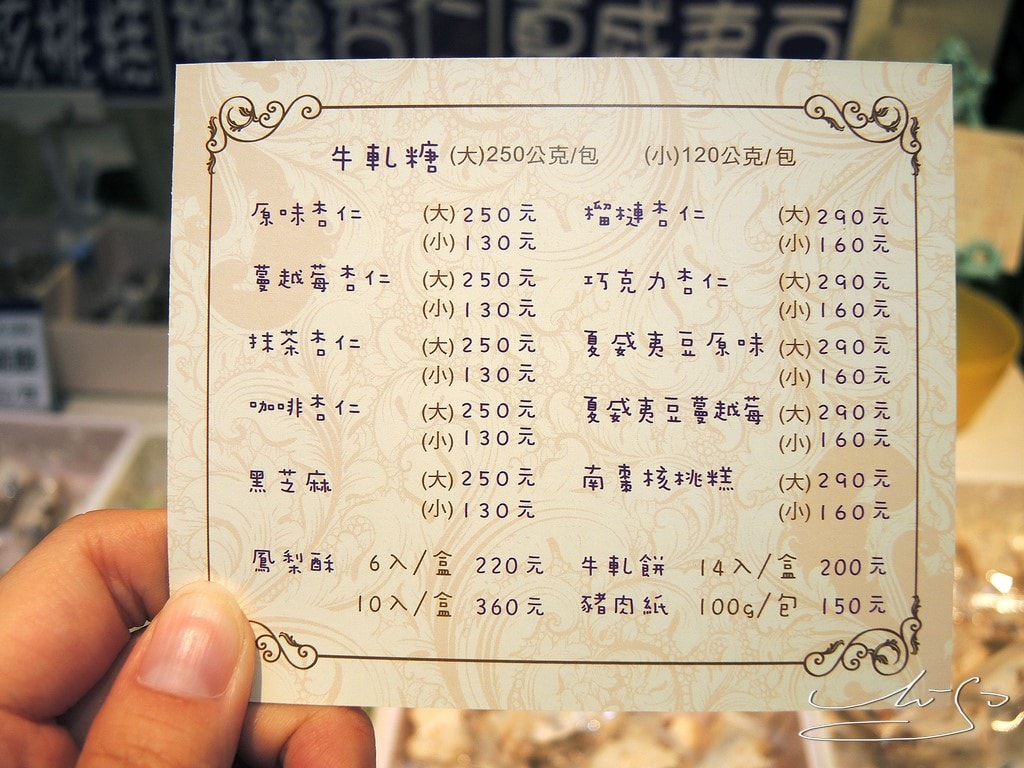 牛軋糖 (大)250公克/包 (小)120公克/包
原味杏仁 (大)250元 榴槤杏仁 (大)290元
(小)130元 (小)160元
蔓越莓杏仁 (大)250元 巧克力杏仁 (大)290元
(小)130元 (小)160元
抹茶杏仁 (大)250元 夏威夷豆原味 (大)290元
(小)130元 (小)160元
咖啡杏仁 (大)250元 夏威夷豆蔓越莓 (大)290元
(小)130元 (小)160元
黑芝麻 (大)250元 南棗核桃糕 (大)290元
(小)130元 (小)160元
鳳梨酥 6入/盒 220元 牛軋餅 14入/盒 200元
10入/盒 360元 豬肉紙 100g/包 150元